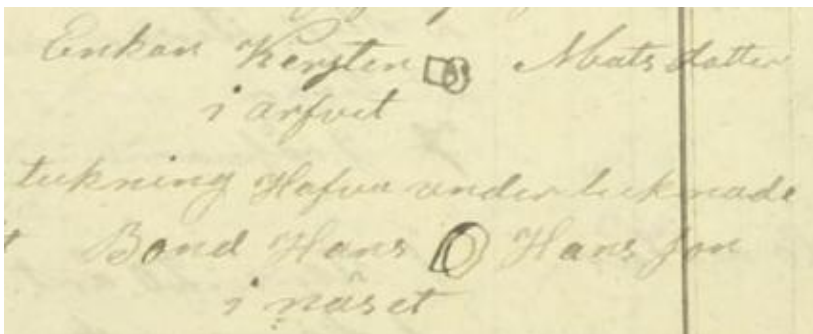 Enkan Kersten Matsdotter
i arfvet
tekning Hafva undertecknade
Bond Hans Hans son
i näset